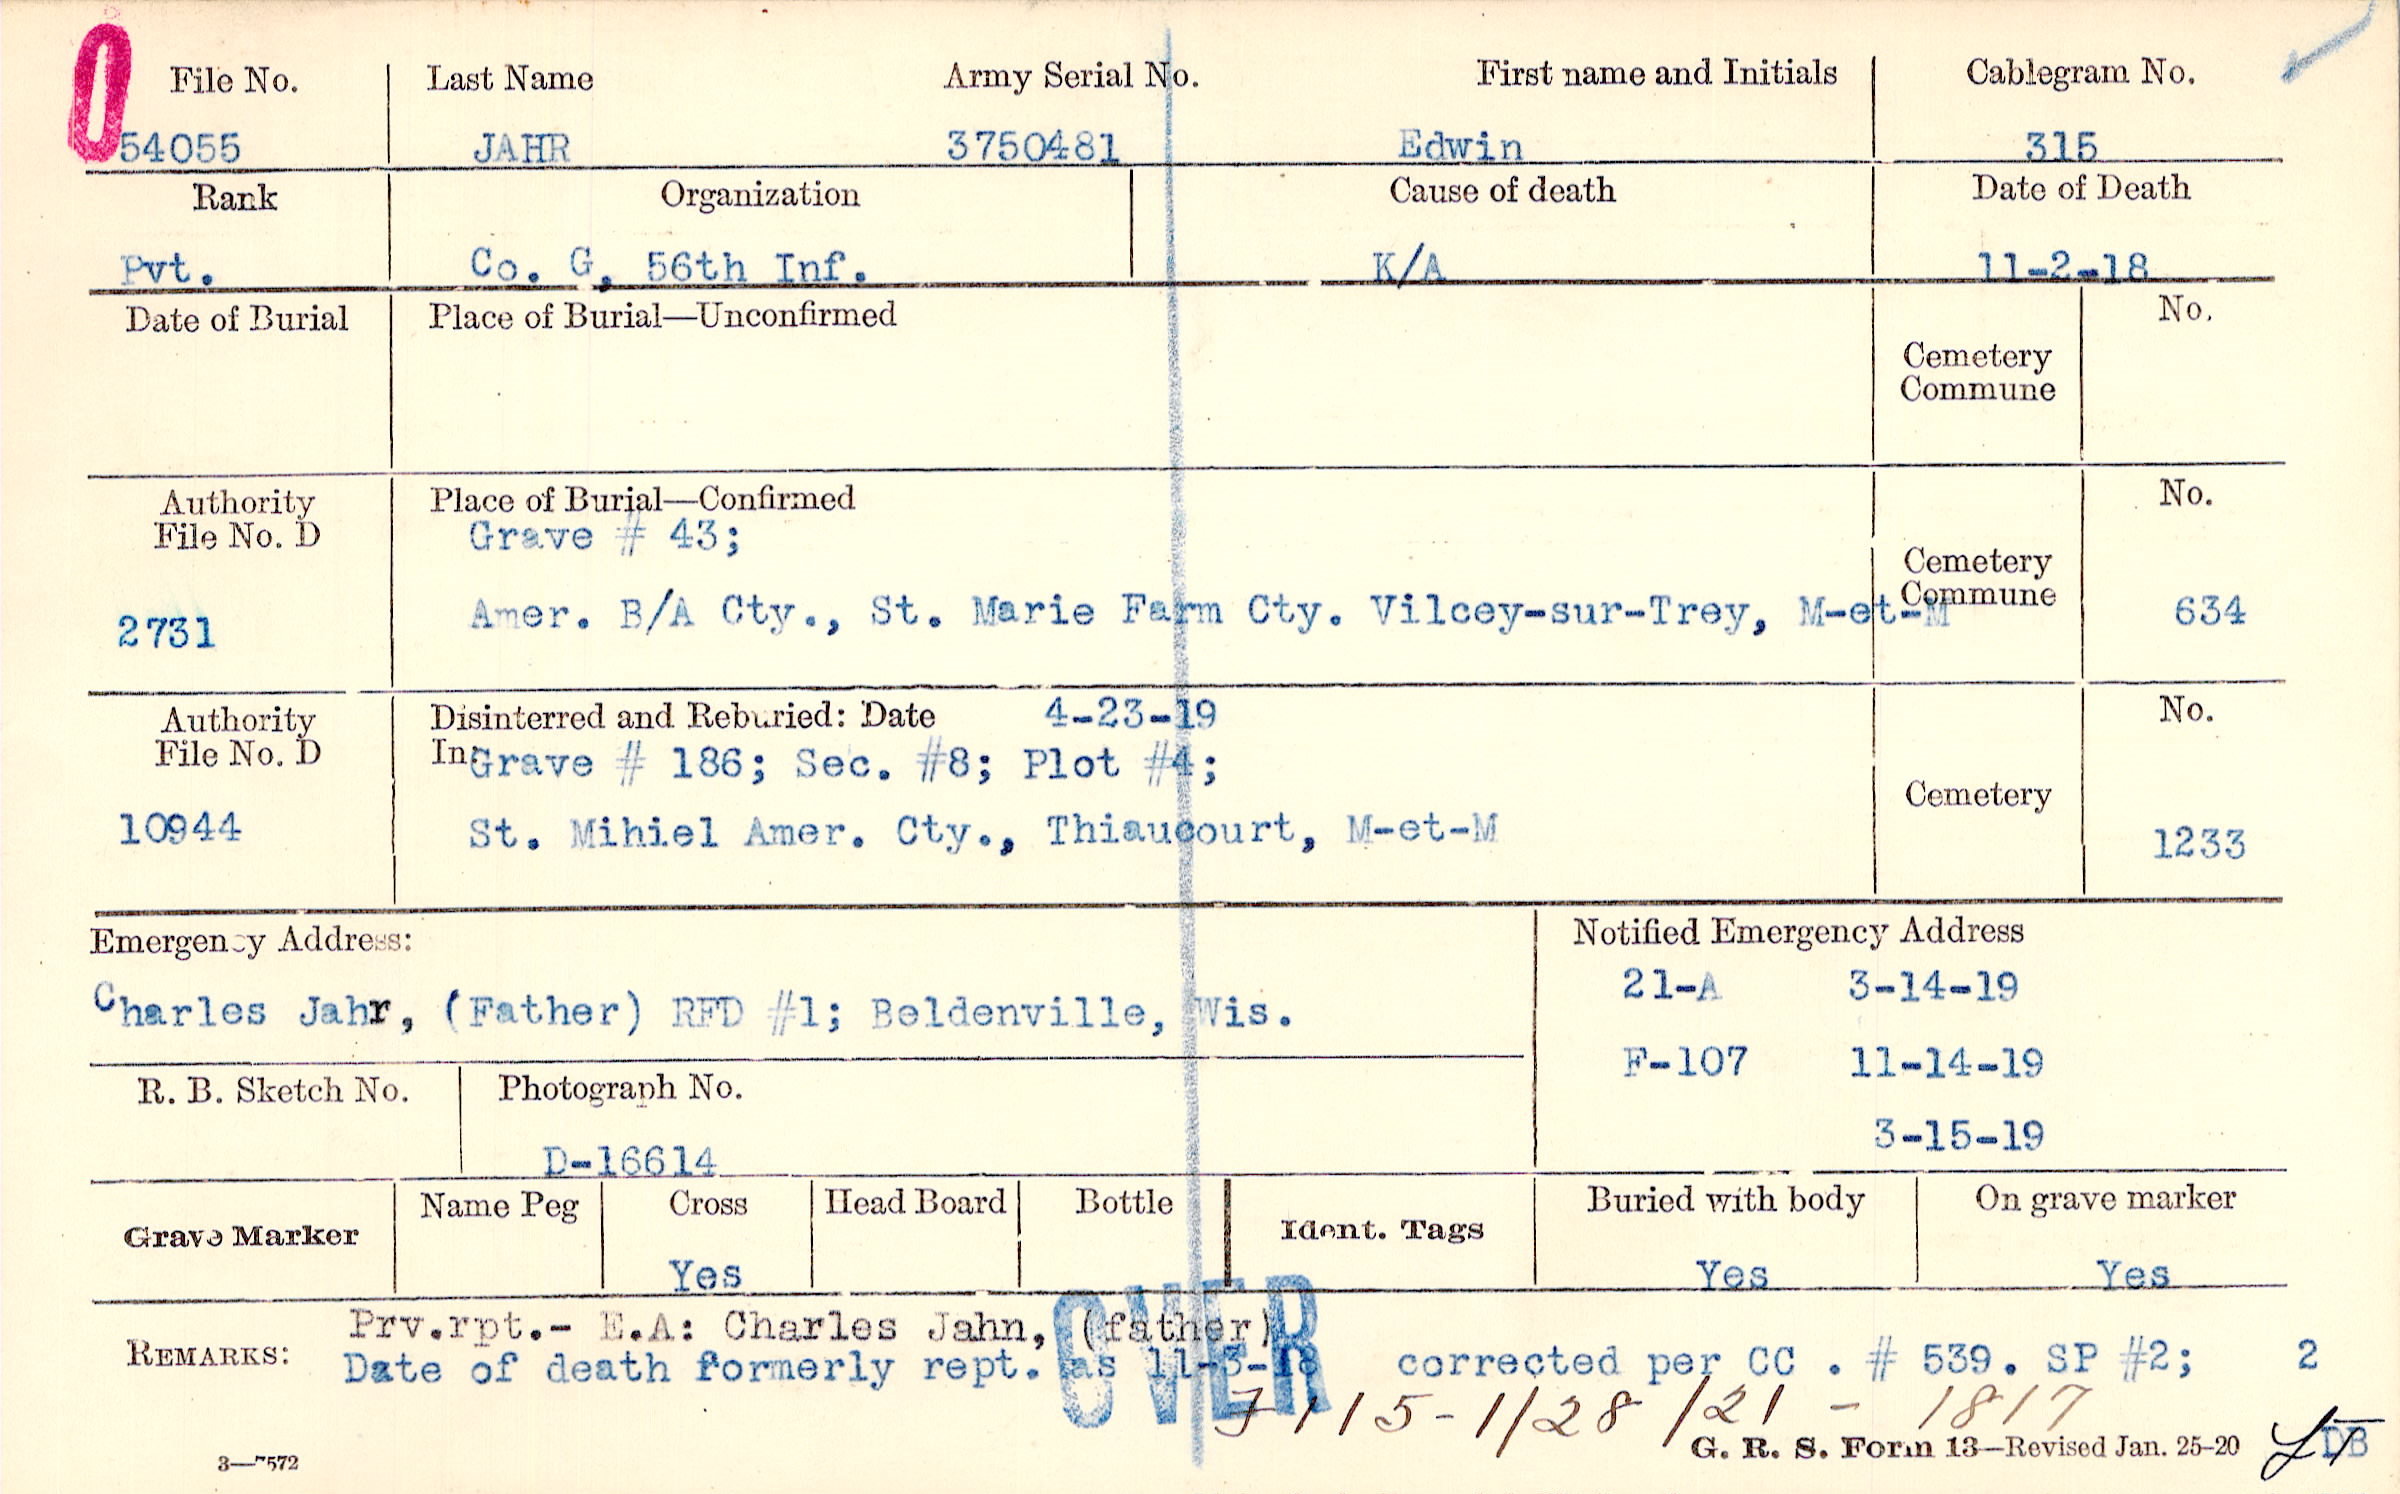 0
File No. Last Name Army Serial No. First name and Initials Cablegram No.
54055 JAHR 3750481 Edwin 315
Rank Organization Cause of death Date of Death
Pvt. Co. G, 56th Inf. K/A 11-2-18
Date of Burial Place of Burial—Unconfirmed No.
Cemetery
Commune
Authority Place of Burial—Confirmed No.
File No. D Grave # 43;
Cemetery
Commune
2731 Amer. B/A Cty., St. Marie Farm Cty. Vilcey-sur-Trey, M-et-M 634
Authority Disinterred and Reburied: Date 4-23-19 No.
File No. D In Grave # 186; Sec. #8; Plot #4;
Cemetery
10944 St. Mihiel Amer. Cty., Thiaucourt, M-et-M 1233
Emergency Address: Notified Emergency Address
21-A 3-14-19
Charles Jahr, (Father) RFD #1; Beldenville, Wis.
F-107 11-14-19
R. B. Sketch No. Photograph No.
3-15-19
D-16614
Grave Marker Name Peg Cross Head Board Bottle Ident. Tags Buried with body On grave marker
Yes Yes Yes
Prv.rpt.- E.A: Charles Jahn, (father)
REMARKS: Date of death formerly rept. as 11-3-18 corrected per CC . # 539. SP #2; 2
OVER
115-1/28/21 - 1817
3—7572 G. R. S. Form 13—Revised Jan. 25-20 DB